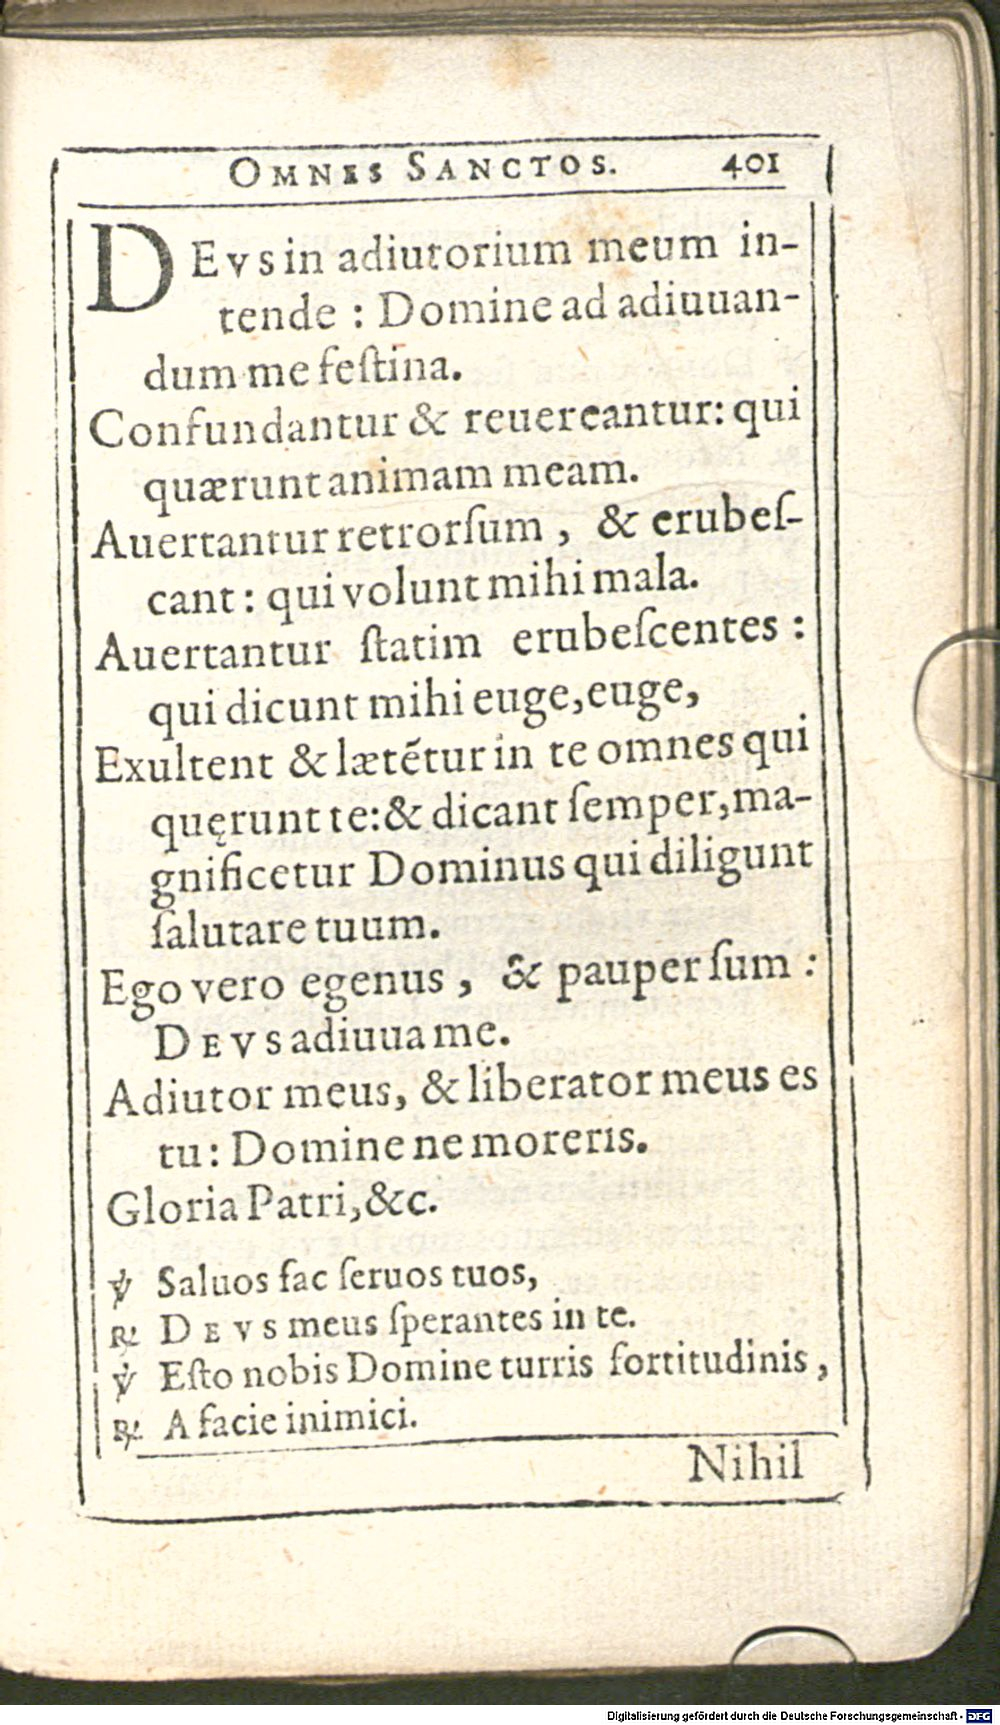 OMNES SANCTOS. 401
DEVS in adiutorium meum in-
tende : Domine ad adiuuan-
dum me feſtina.
Confundantur & reuereantur: qui
quærunt animam meam.
Auertantur retrorſum , & erubeſ-
cant : qui volunt mihi mala.
Auertantur ſtatim erubeſcentes :
qui dicunt mihi euge,euge,
Exultent & lætẽtur in te omnes qui
quęrunt te:& dicant ſemper,ma-
gnificetur Dominus qui diligunt
ſalutare tuum.
Ego vero egenus , & pauper ſum :
DEVS adiuua me.
Adiutor meus, & liberator meus es
tu : Domine ne moreris.
Gloria Patri,&c.
℣ Saluos fac ſeruos tuos,
℟ DEVS meus ſperantes in te.
℣ Eſto nobis Domine turris fortitudinis ,
℟ A facie inimici.
Nihil
Digitalisierung gefördert durch die Deutsche Forschungsgemeinschaft - DFG